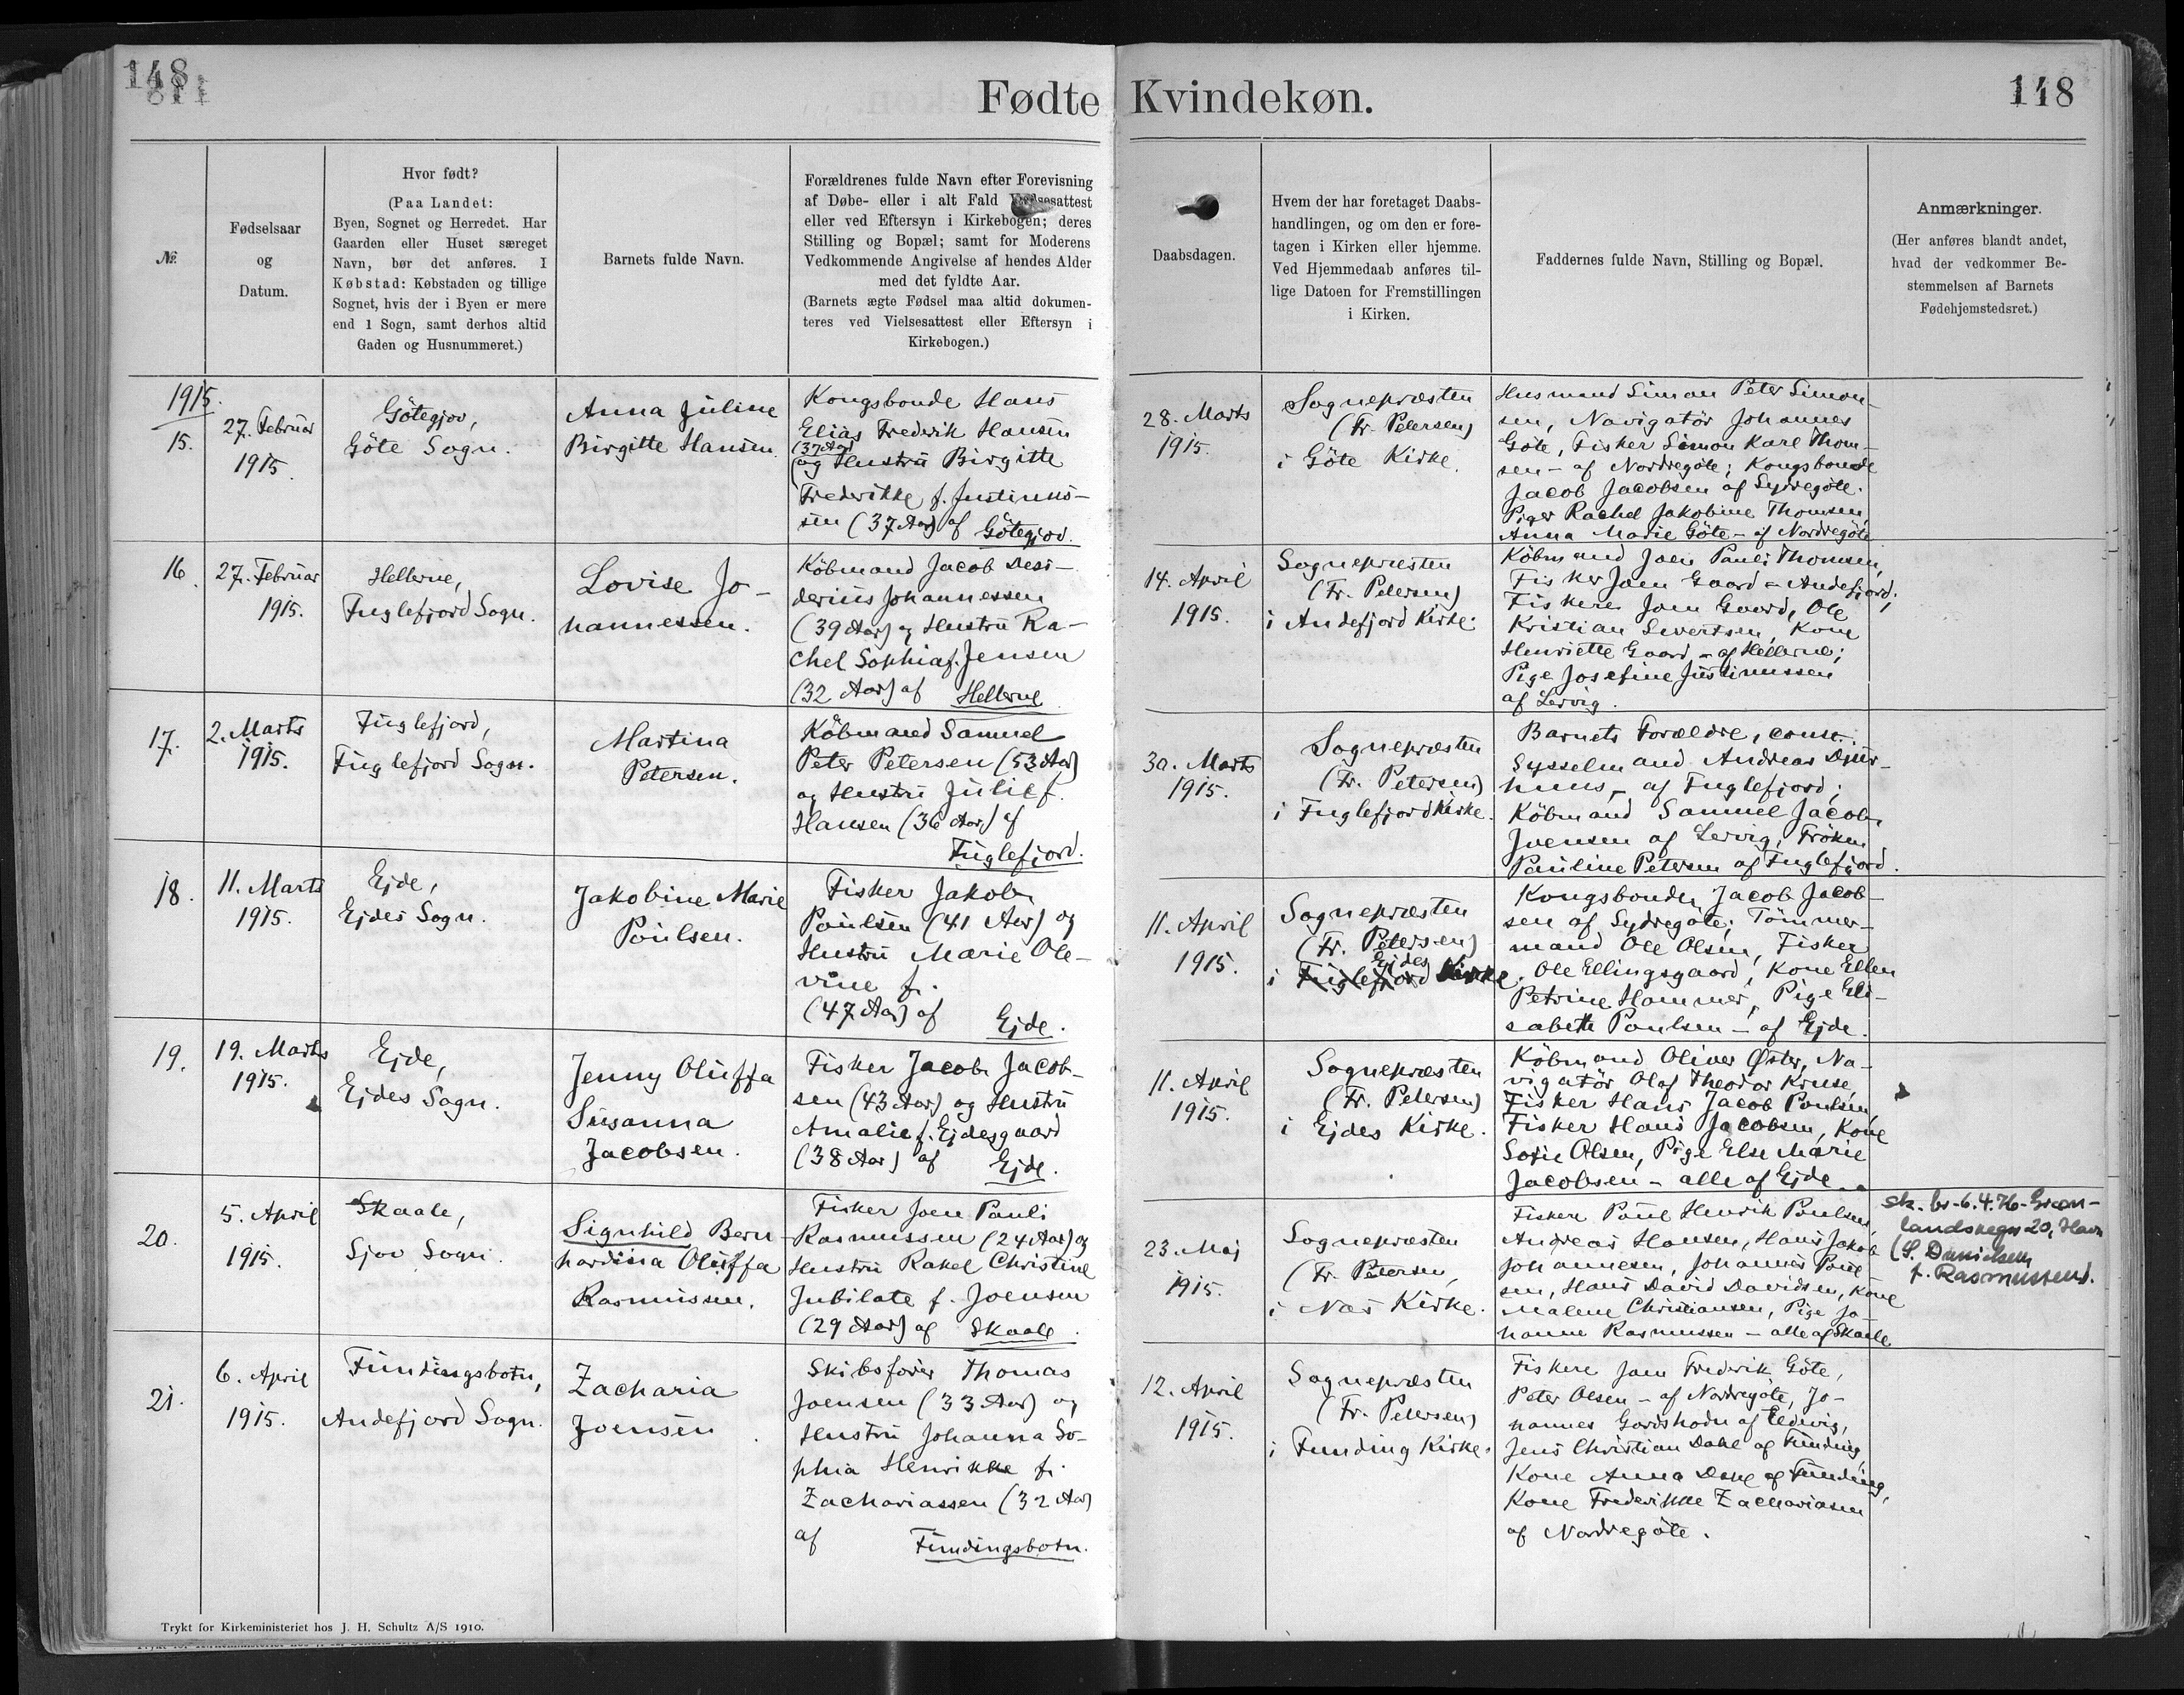 148
148
Fødte Kvindekøn.
№
Fødselsaar
og
Datum.
Hvor født?
(Paa Landet:
Byen, Sognet og Herredet. Har
Gaarden eller Huset særeget
Navn, bør det anføres. I
Købstad: Købstaden og tillige
Sognet, hvis der i Byen er mere
end 1 Sogn, samt derhos altid
Gaden og Husnummeret.)
Barnets fulde Navn.
Forældrenes fulde Navn efter Forevisning
af Døbe- eller i alt Fald Fødselsattest
eller ved Eftersyn i Kirkebogen; deres
Stilling og Bopæl; samt for Moderens
Vedkommende Angivelse af hendes Alder
med det fyldte Aar.
(Barnets ægte Fødsel maa altid dokumen-
teres ved Vielsesattest eller Eftersyn i
Kirkebogen.)
Daabsdagen.
Hvem der har foretaget Daabs-
handlingen, og om den er fore-
tagen i Kirken eller hjemme.
Ved Hjemmedaab anføres til-
lige Datoen for Fremstillingen
i Kirken.
Faddernes fulde Navn, Stilling og Bopæl.
Anmærkninger.
(Her anføres blandt andet,
hvad der vedkommer Be-
stemmelsen af Barnets
Fødehjemstedsret.)
1915.
15.
27. Februar
1915.
Götegjov,
Göte Sogn.
Anna Juline
Birgitte Hansen.
Kongsbonde Hans
Elias Frederik Hansen
(37 Aar)
og Hustru Birgitte
Frederikke f. Justinus-
sen (37 Aar) af Götegjov.
28. Marts
1915.
Sognepræsten
(Fr. Petersen)
i Göte Kirke.
Husmand Simon Peter Simon-
sen, Navigatör Johannes
Göte, Fisker Simon Karl Thom-
sen - af Nordregöte; Kongsbonde
Jacob Jacobsen af Sydregöte.
Piger Rachel Jakobine Thomsen,
Anna Marie Göte - af Nordregöte
16.
27. Februar
1915.
Hellerne,
Fuglefjord Sogn.
Lovise Jo-
hannessen.
Köbmand Jacob Desi-
derius Johannessen
(39 Aar) og Hustru Ra-
chel Sophia f. Jensen
(32 Aar) af Hellerne
14. April
1915.
Sognepræsten
(Fr. Petersen)
i Andefjord Kirke.
Köbmand Joen Pauli Thomsen,
Fisker Joen Gaard - Andefjord;
Fiskere Joen Gaard, Ole
Kristian Sivertsen, Kone
Henriette Gaard - af Hellerne;
Pige Josefine Justinussen
af Lervig.
17.
2. Marts
1915.
Fuglefjord,
Fuglefjord Sogn.
Martina
Petersen.
Köbmand Samuel
Peter Petersen (53 Aar)
og Hustru Julie f.
Hansen (36 Aar) af
Fuglefjord.
30. Marts
1915.
Sognepræsten
(Fr. Petersen)
i Fuglefjord Kirke.
Barnets Forældre, const.
Sysselmand Andreas Djur-
huus, - af Fuglefjord;
Köbmand Samuel Jacob
Joensen af Lervig, Fröken
Pauline Petersen af Fuglefjord.
18.
11. Marts
1915.
Ejde,
Ejdes Sogn.
Jakobine Marie
Poulsen.
Fisker Jakob
Poulsen (41 Aar) og
Hustru Marie Ole-
vine f.
(47 Aar) af Ejde.
11. April
1915.
Sognepræsten
(Fr. Petersen)
Ejdes
i Fuglefjord Kirke.
Kongsbonde Jacob Jacob-
sen af Sydregöte; Tömmer-
mand Ole Olsen, Fisker
Ole Ellingsgaard, Kone Ellen
Petrine Hammer, Pige Eli-
sabeth Poulsen - af Ejde.
19.
19. Marts
1915.
Ejde,
Ejdes Sogn.
Jenny Oluffa
Susanna
Jacobsen.
Fisker Jacob Jacob-
sen (43 Aar) og Hustru
Amalie f. Ejdesgaard
(38 Aar) af Ejde.
11. April
1915.
Sognepræsten
(Fr. Petersen)
i Ejdes Kirke.
Köbmand Oliver Øster, Na-
vigatör Olaf Theodor Kruse,
Fisker Hans Jacob Poulsen,
Fisker Hans Jacobsen, Kone
Sofie Olsen, Pige Else Marie
Jacobsen - alle af Ejde.
20.
5. April
1915.
Skaale,
Sjov Sogn.
Signhild Bern-
hardina Oluffa
Rasmussen.
Fisker Joen Pauli
Rasmussen (24 Aar) og
Hustru Rakel Christine
Jubilate f. Joensen
(29 Aar) af Skaale.
23. Maj
1915.
Sognepræsten
(Fr. Petersen
i Næs Kirke.
Fiskere Poul Henrik Poulsen,
Andreas Hansen, Hans Jakob
Johannesen, Johannes Poul
sen, Hans David Davidsen, Kone
Malene Christiansen, Pige Jo-
hanne Rasmussen - alle af Skaale
sk. br. 6.4.76.
20, Havn
(S. Danielsen
f. Rasmussen).
21.
6. April
1915.
Fundingsbotn,
Andefjord Sogn.
Zacharia
Joensen.
Skibsförer Thomas
Joensen (33 Aar) og
Hustru Johanna So-
phia Henrikke f.
Zachariassen (32 Aar)
af Fundingsbotn.
12. April
1915.
Sognepræsten
(Fr. Petersen)
i Funding Kirke.
Fiskere Joen Frederik Göte,
Peter Olsen - af Nordregöte, Jo-
hannes
Jens Christian Dahl af Funding,
Kone Anna Dahl af Funding,
Kone Frederikke Zachariasen
af Nordregöte.
Trykt for Kirkeministeriet hos J. H. Schultz A/S 1910.